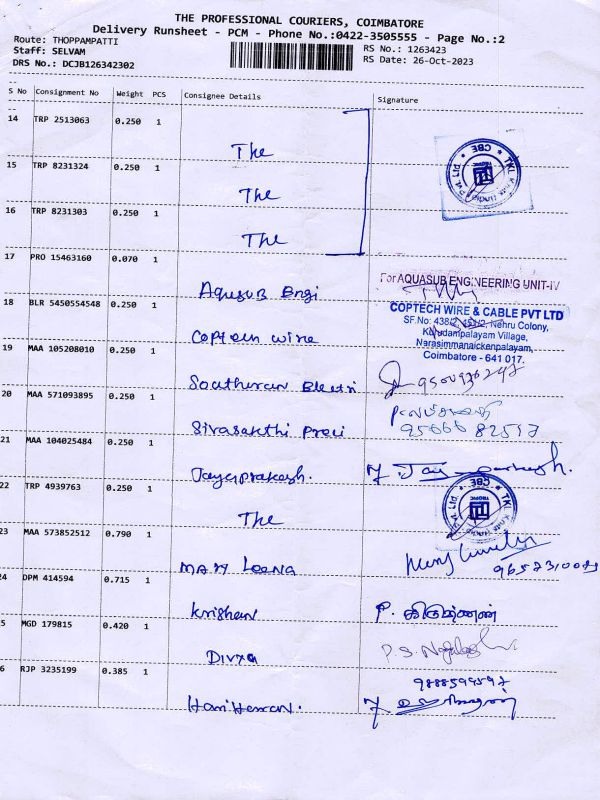 THE PROFESSIONAL COURIERS, COIMBATORE
Delivery Runsheet - PCM - Phone No.:0422-3505555 - Page No.:2
Route: THOPPAMPATTI
Staff: SELVAM
DRS No.: DCJB126342302
RS No.: 1263423
RS Date: 26-Oct-2023
S No Consignment No Weight PCS Consignee Details Signature
14 TRP 2513063 0.250 1 The
15 TRP 8231324 0.250 1 The
16 TRP 8231303 0.250 1 The
TKL Knits (India) Pvt. Ltd * CBE *
TROPIC
17 PRO 15463160 0.070 1 Aquasub Engi
For AQUASUB ENGINEERING UNIT-IV
18 BLR 5450554548 0.250 1 Coptech wire
COPTECH WIRE & CABLE PVT LTD
Nehru Colony,
Kurudampalayam Village,
Narasimmanaickenpalayam,
Coimbatore - 641 017.
19 MAA 105208010 0.250 1 Southeran Electri
20 MAA 571093895 0.250 1 Sivasakthi Preci
21 MAA 104025484 0.250 1 Jayaprakash.
22 TRP 4939763 0.250 1 The
TKL Knits (India) Pvt. Ltd * CBE *
TROPIC
23 MAA 573852512 0.790 1 MARY Leena
24 DPM 414594 0.715 1 Krishan
P. கிருஷ்ணன்
5 MGD 179815 0.420 1 Divya
6 RJP 3235199 0.385 1 Hariharan.